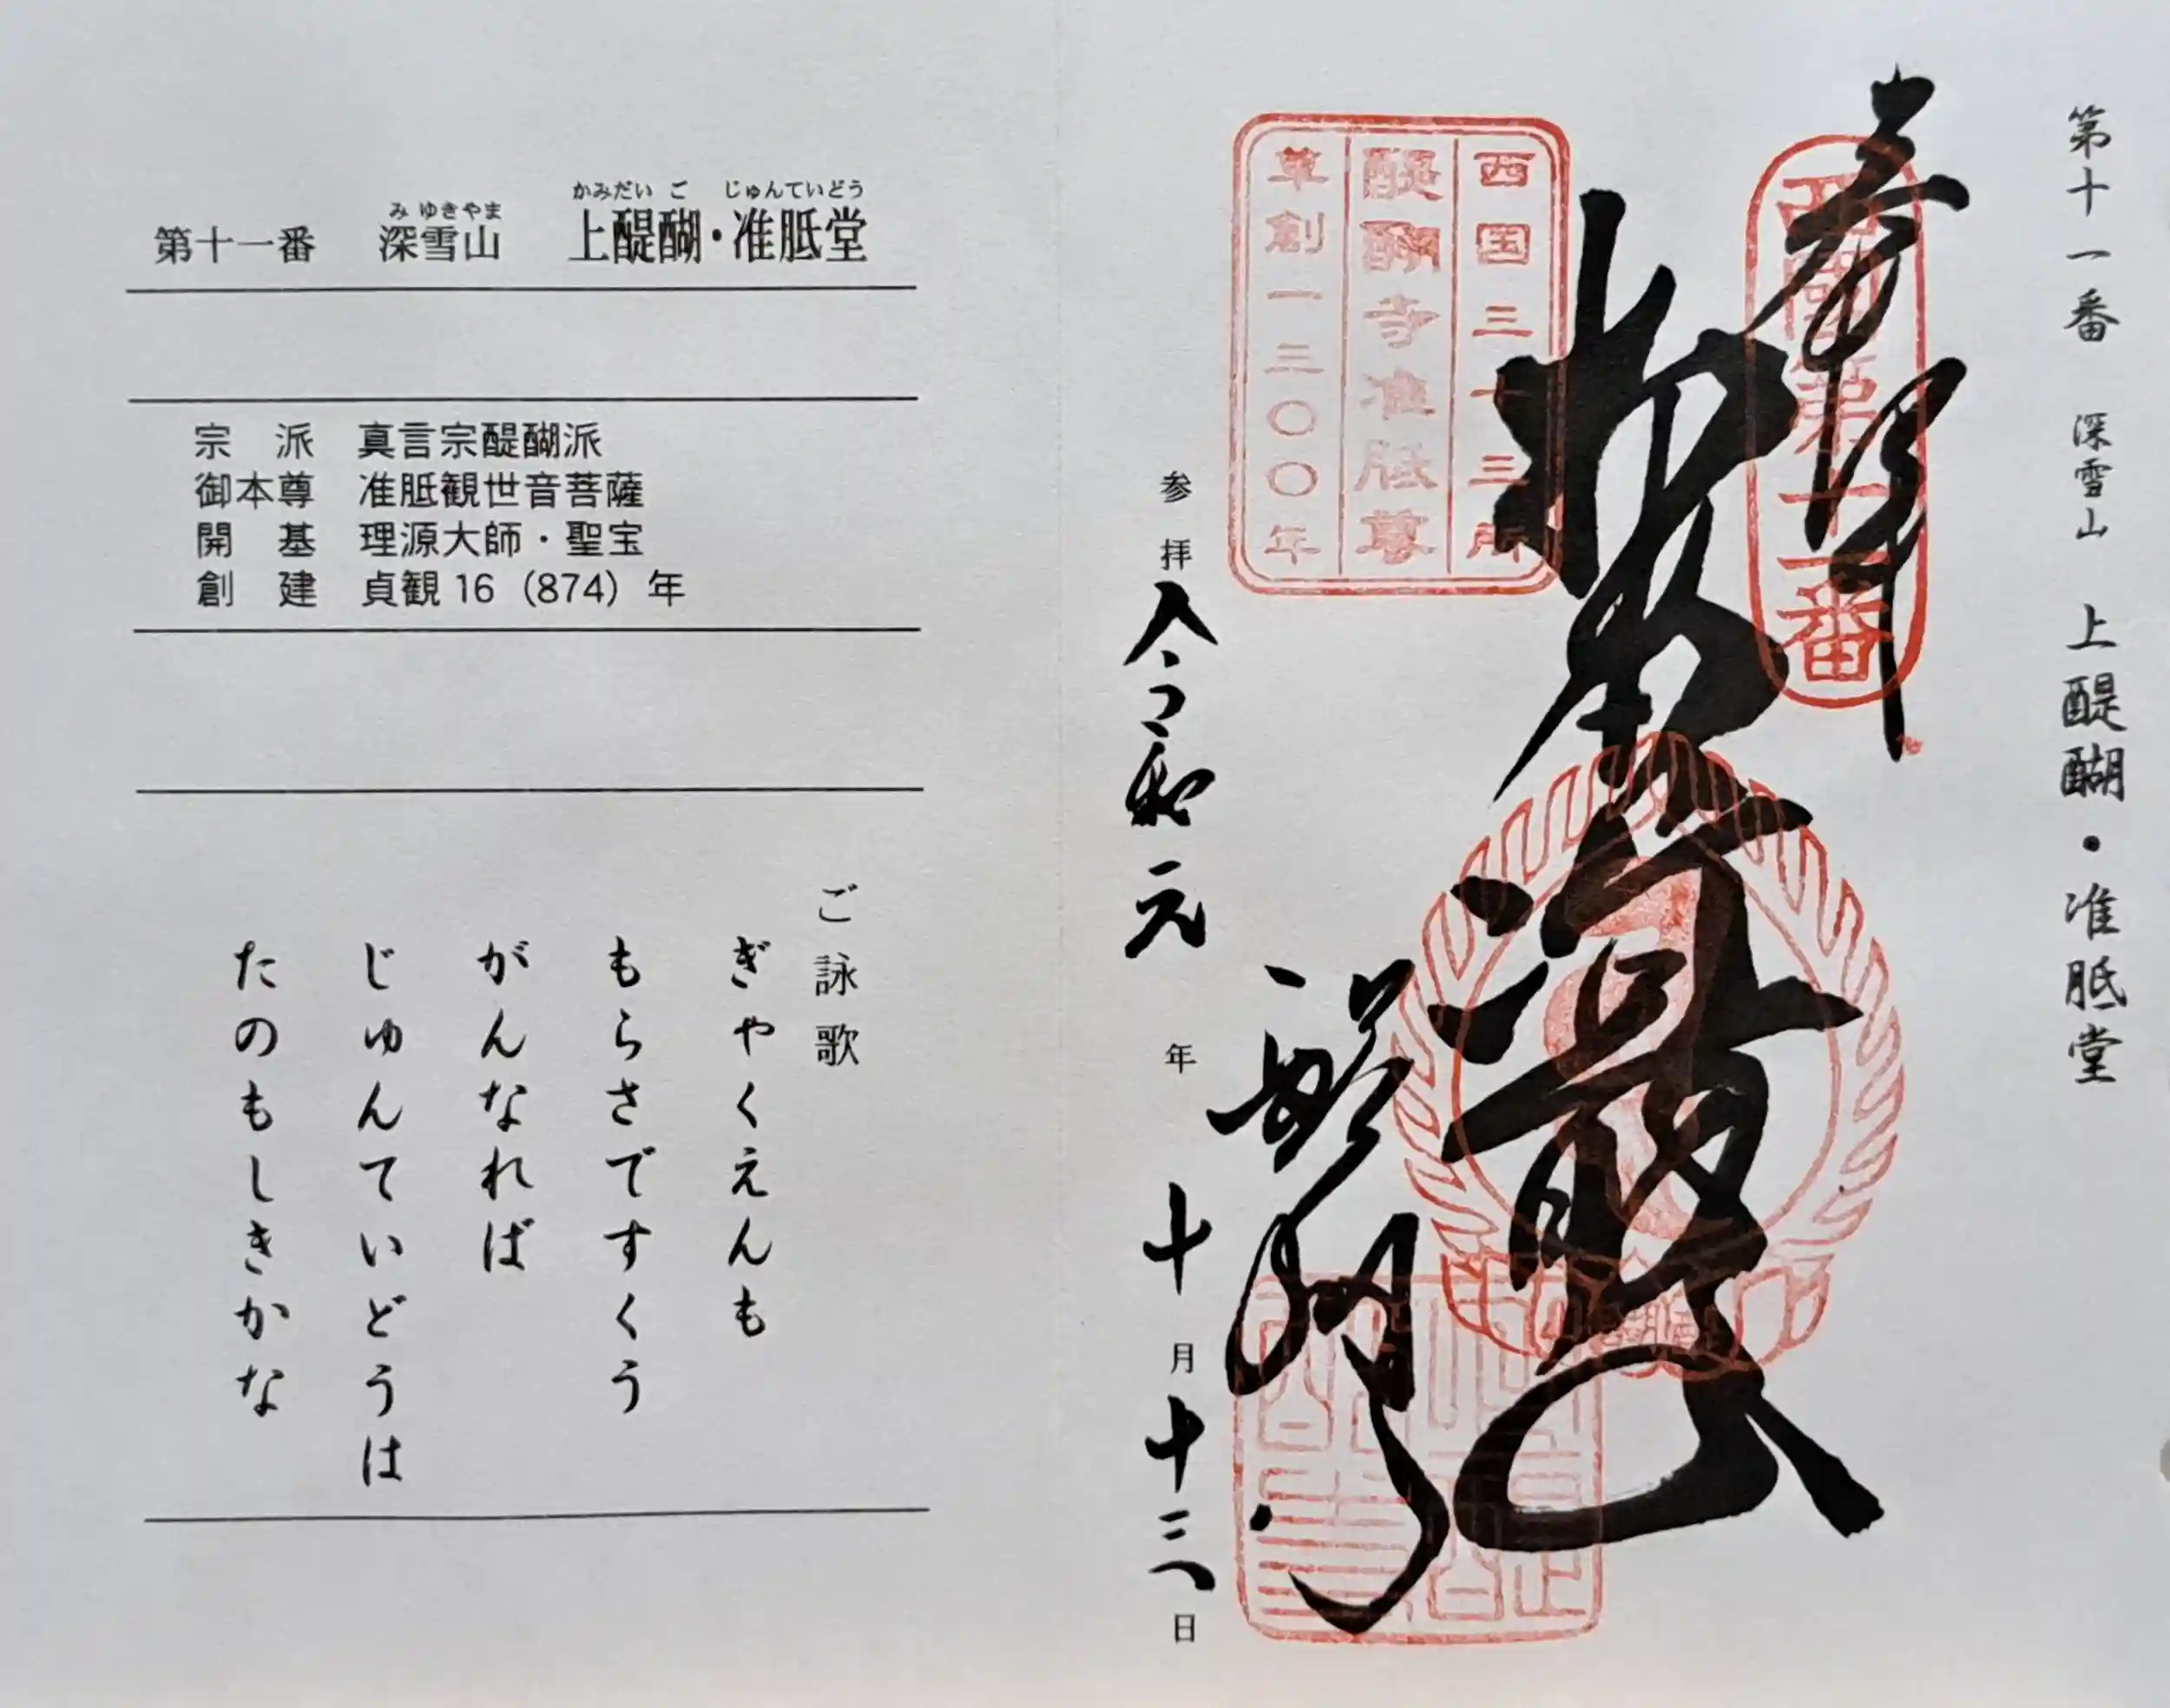 第十一番 深雪山 上醍醐・准胝堂
奉拝
西国第十一番
准胝堂
西国三十三所
醍醐寺准胝尊
草創一三〇〇年
醍醐寺
参拝 令和元年十月十三日
みゆきやま かみだいご じゅんていどう
第十一番 深雪山 上醍醐・准胝堂
宗派 真言宗醍醐派
御本尊 准胝観世音菩薩
開基 理源大師・聖宝
創建 貞観16(874)年
ご詠歌
ぎゃくえんも
もらさですくう
がんなれば
じゅんていどうは
たのもしきかな